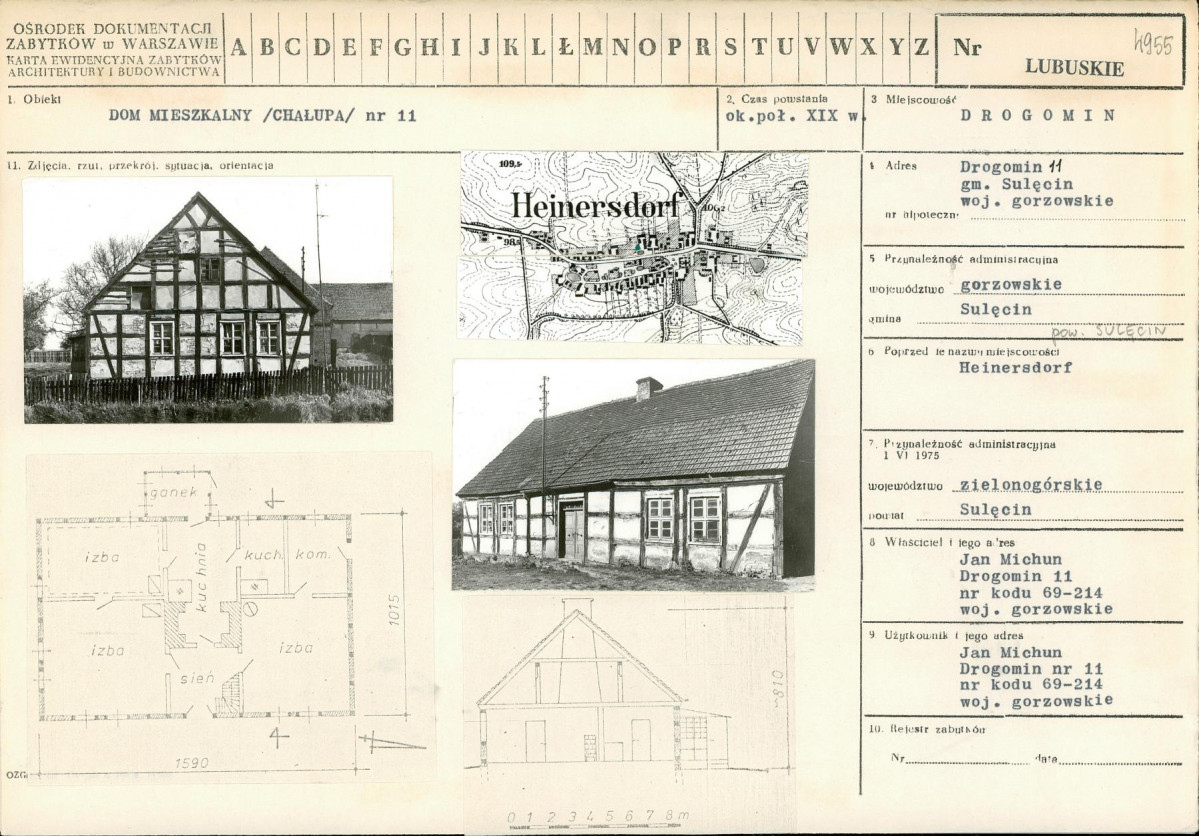 OŚRODEK DOKUMENTACJI
ZABYTKÓW w WARSZAWIE
KARTA EWIDENCYJNA ZABYTKÓW
ARCHITEKTURY I BUDOWNICTWA
A B C D E F G H I J K L Ł M N O P R S T U V W X Y Z
Nr 4955
LUBUSKIE
1. Obiekt
DOM MIESZKALNY /CHAŁUPA/ nr 11
2. Czas powstania
ok.poł. XIX w.
3 Miejscowość
DROGOMIN
11. Zdjęcia, rzut, przekrój, sytuacja, orientacja
109,5
Heinersdorf
106,2
98,5
4 Adres
Drogomin 11
gm. Sulęcin
woj. gorzowskie
nr hipoteczny
5 Przynależność administracyjna
województwo gorzowskie
gmina Sulęcin
pow. SULĘCIN
6 Poprzednie nazwy miejscowości
Heinersdorf
7. Przynależność administracyjna
1 VI 1975
województwo zielonogórskie
powiat Sulęcin
8 Właściciel i jego adres
Jan Michun
Drogomin 11
nr kodu 69-214
woj. gorzowskie
9. Użytkownik i jego adres
Jan Michun
Drogomin nr 11
nr kodu 69-214
woj. gorzowskie
10. Rejestr zabytków
Nr data
ganek
izba
kuchnia
kuch.
kom.
izba
izba
sień
1015
1590
~810
OZG.
0 1 2 3 4 5 6 7 8 m